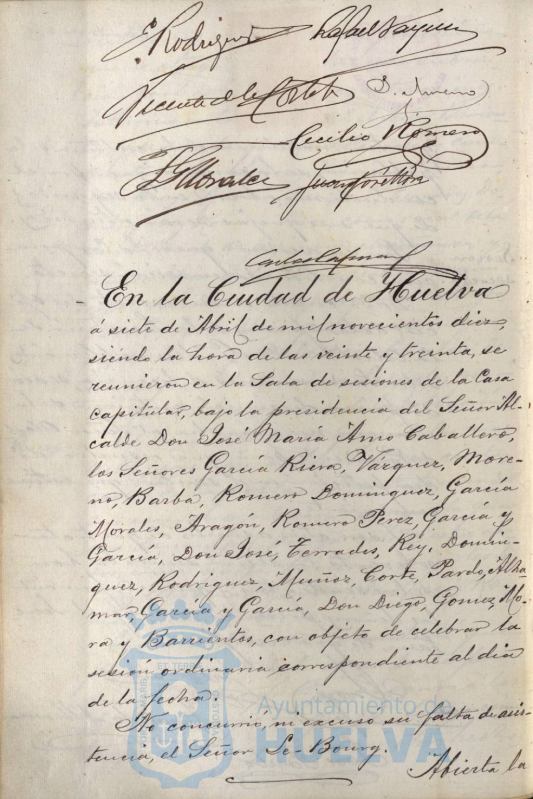 E. Rodriguez Rafael Vazquez
Vicente de la Corte
J. Moreno
Cecilio Romero
J G Morales
En la Ciudad de Huelva
á siete de Abril de mil novecientos diez,
siendo la hora de las veinte y treinta, se
reunieron en la Sala de sesiones de la Casa
capitular, bajo la presidencia del Señor Al-
calde Don José María Amo Caballero,
los Señores García Riera, Vázquez, More-
no, Barba, Romero Dominguez, García
Morales, Aragón, Romero Perez, García y
García, Don José, Terrades, Rey, Domin-
guez, Rodriguez, Muñoz, Corte, Pardo, Alha-
mar, García y García, Don Diego, Gomez, Mo-
ra y Barrientos, con objeto de celebrar la
sesión ordinaria correspondiente al dia
de la fecha.
No concurrió, ni excuso su falta de asis-
tencia, el Señor Le-Bourg.
Abierta la
Ayuntamiento de
HUELVA